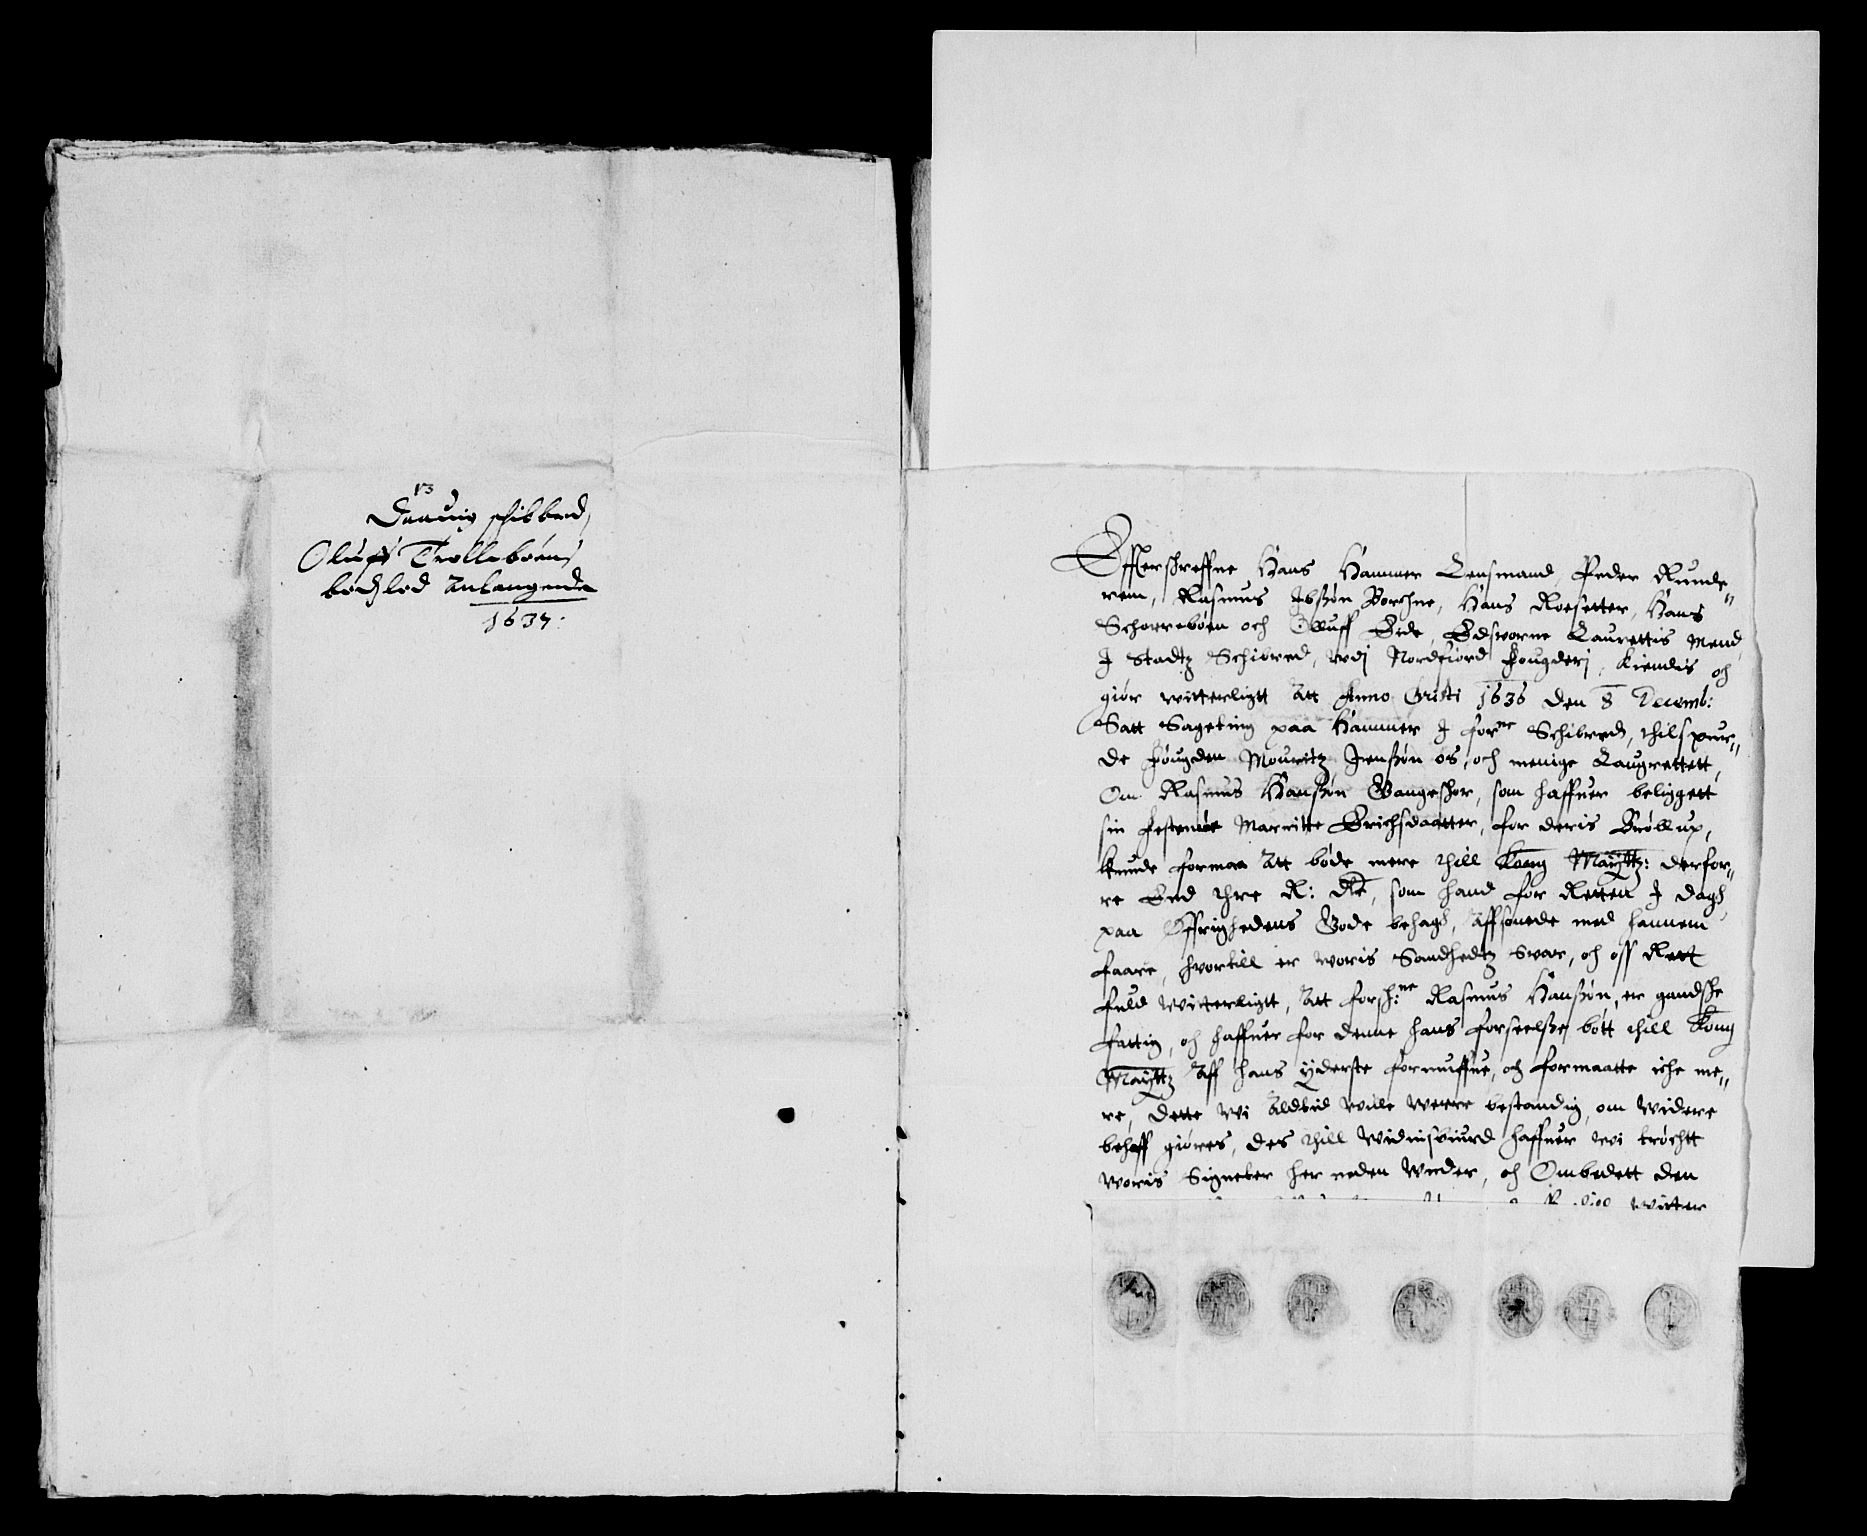 13
Daauig schibbred
Oluff Trolleboens
bodslod Anlangende
1637:
Effterschreffne Hans Hammer Lensmand, Peder Runde„
rem, Rasmus Ibssøn Borchne, Hans Roesetter, Hans
Schorreboen och Oluff Eide, Edsvorne Laurettis Mend,
J Stadtz Schibred, wdj Nordfiord fougderj, kiendis och
giør witterligtt Att Anno Cristi 1636 den 8 Decemb:
Satt Sageting paa Hammer J forne Schibred, thilspur„
de fougden Mouritz Jenssøn os, och menige Laugrettett,
Om Rasmus Hanssøn Vangeschor, som haffuer beliggett
sin festemøe Marritte Erichsdaatter, for deris Brøllup,
kunde formaa Att bøde mere thill Kong Maÿttz: derfor„
re End thre R: dle, som hand for Retten J dagh
paa Øffrighedens Gode behagh, Affsonede med hannem
faare, hvortill er woris Sandhedtz Svar, och oss Rett
fuld witterligtt, Att forsch:ne Rasmus Hanssøn, er gandsche
fattig, och haffuer for denne hans forseelsse bøtt thill Kong
Maÿttz Aff hans ÿderste formuffue, och formaatte iche me„
re, dette wi Altid wille werre bestandig, om widere
behoff giøres, des thill widnisbiurd haffuer wi trøchtt
woris Signeter her neden Under, och Ombedett den
witter